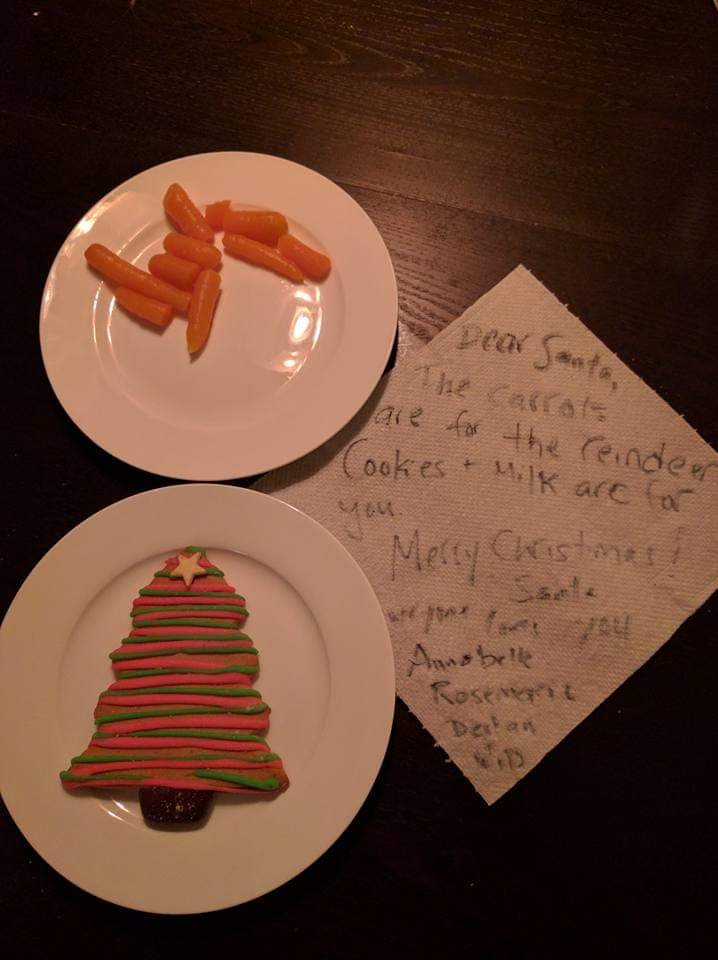 Dear Santa,
The carrots
are for the reindeer
Cookies + Milk are for
you.
Merry Christmas!
Santa
you
Annabelle
Rosemarie